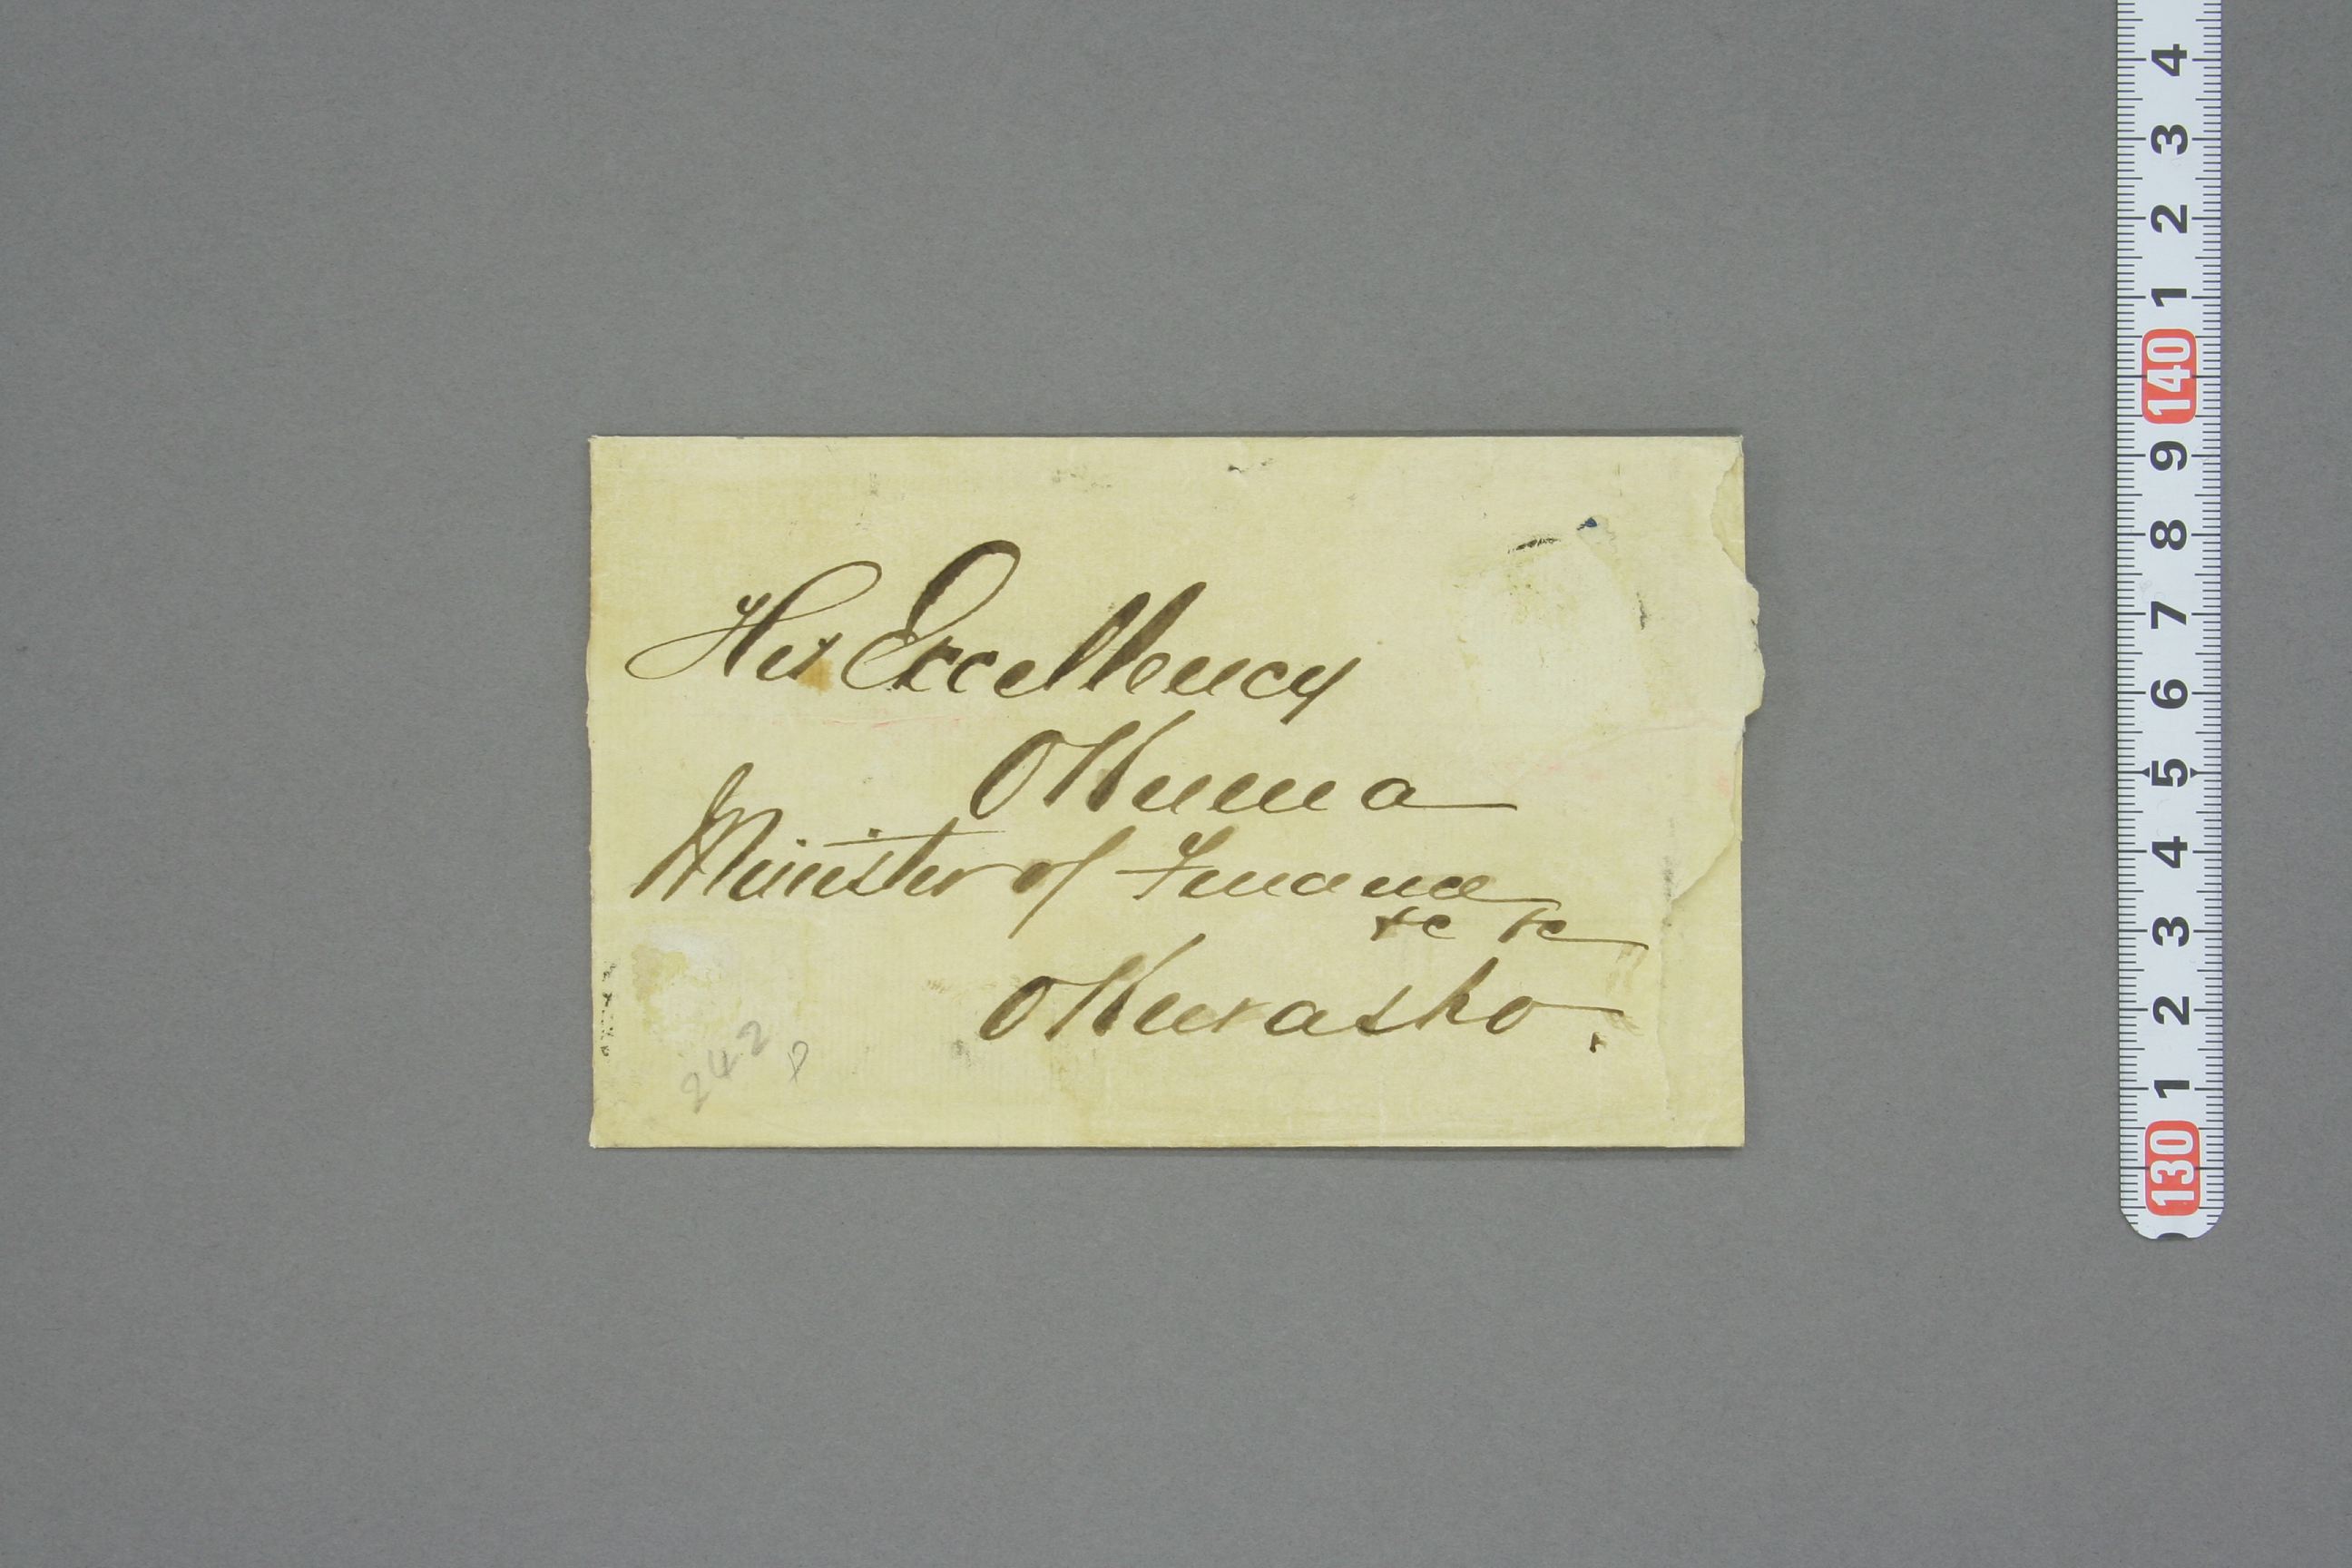 His Excellency
OKuma
Minister of Finance
&c &c
OKurasho.
242
4
3
2
1
140
9
8
7
6
5
4
3
2
1
130